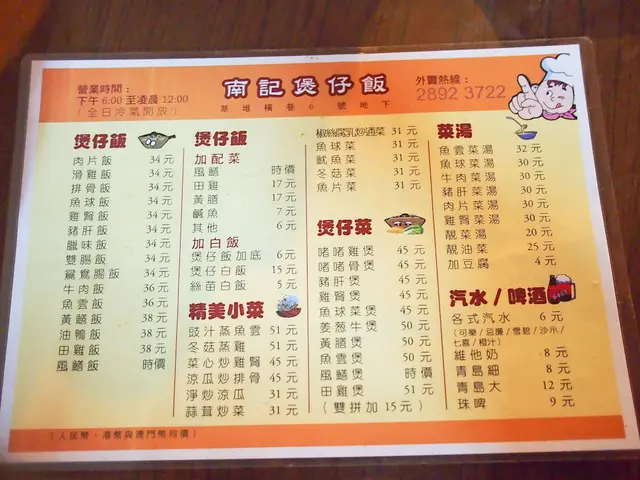 營業時間：
下午6:00至凌晨12:00
（全日冷氣開放）
南記煲仔飯
草堆橫巷6號地下
外賣熱線：
2892 3722
煲仔飯
肉片飯 34元
滑雞飯 34元
排骨飯 34元
魚球飯 34元
雞腎飯 34元
豬肝飯 34元
臘味飯 34元
雙腸飯 34元
鴛鴦腸飯 34元
牛肉飯 36元
魚雲飯 36元
黃鱔飯 38元
油鴨飯 38元
田雞飯 38元
風鱔飯 時價
煲仔飯
加配菜
風鱔 時價
田雞 17元
黃鱔 17元
鹹魚 7元
其他 6元
加白飯
煲仔飯加底 6元
煲仔白飯 15元
絲苗白飯 5元
精美小菜
豉汁蒸魚雲 51元
冬菇蒸雞 51元
菜心炒雞腎 45元
涼瓜炒排骨 45元
淨炒涼瓜 31元
蒜茸炒菜 31元
椒絲腐乳炒通菜 31元
魚球菜 31元
魷魚菜 31元
冬菇菜 31元
魚片菜 31元
煲仔菜
啫啫雞煲 45元
啫啫骨煲 45元
豬肝煲 45元
雞腎煲 45元
魚球菜煲 45元
姜葱牛煲 50元
黃鱔煲 50元
魚雲煲 50元
風鱔煲 時價
田雞煲 51元
（雙拼加15元）
菜湯
魚雲菜湯 32元
魚球菜湯 30元
牛肉菜湯 30元
豬肝菜湯 30元
肉片菜湯 30元
雞腎菜湯 30元
靚菜湯 20元
靚油菜 25元
加豆腐 4元
汽水／啤酒
各式汽水 6元
（可樂／忌廉／雪碧／沙示／
七喜／橙汁）
維他奶 8元
青島細 8元
青島大 12元
珠啤 9元
（人民幣、港幣與澳門幣同價）